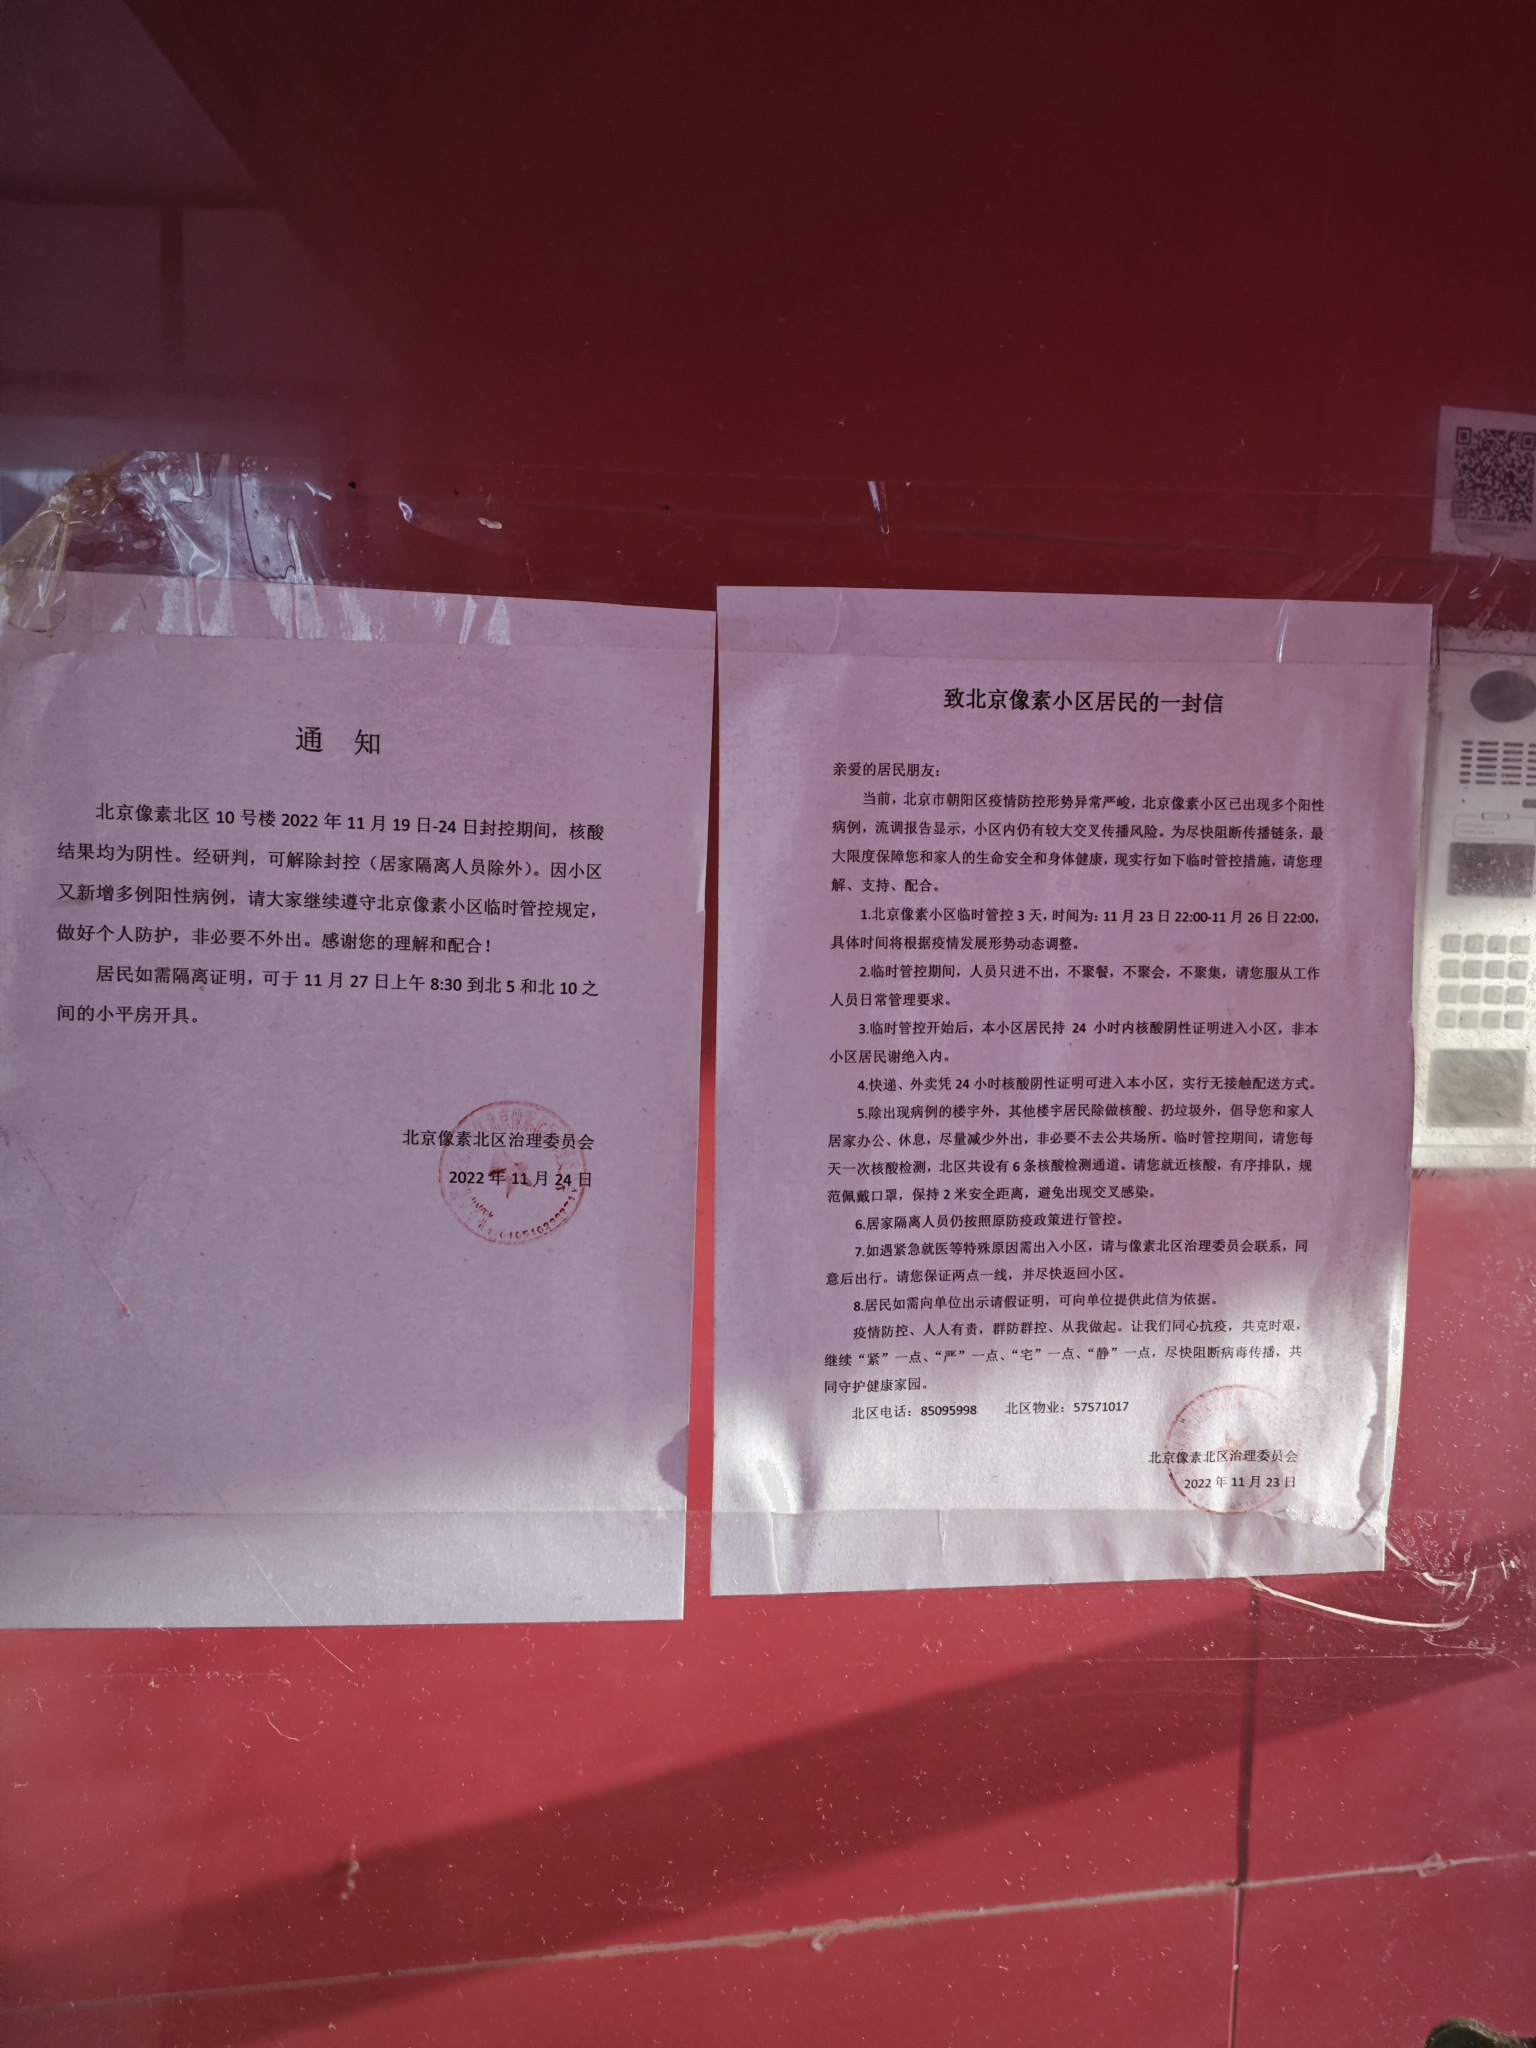 通 知
北京像素北区 10 号楼 2022 年 11 月 19 日-24 日封控期间，核酸
结果均为阴性。经研判，可解除封控（居家隔离人员除外）。因小区
又新增多例阳性病例，请大家继续遵守北京像素小区临时管控规定，
做好个人防护，非必要不外出。感谢您的理解和配合！
居民如需隔离证明，可于 11 月 27 日上午 8:30 到北 5 和北 10 之
间的小平房开具。
北京像素北区治理委员会
2022 年 11 月 24 日
致北京像素小区居民的一封信
亲爱的居民朋友：
当前，北京市朝阳区疫情防控形势异常严峻，北京像素小区已出现多个阳性
病例，流调报告显示，小区内仍有较大交叉传播风险。为尽快阻断传播链条，最
大限度保障您和家人的生命安全和身体健康，现实行如下临时管控措施，请您理
解、支持、配合。
1.北京像素小区临时管控 3 天，时间为：11 月 23 日 22:00-11 月 26 日 22:00，
具体时间将根据疫情发展形势动态调整。
2.临时管控期间，人员只进不出，不聚餐，不聚会，不聚集，请您服从工作
人员日常管理要求。
3.临时管控开始后，本小区居民持 24 小时内核酸阴性证明进入小区，非本
小区居民谢绝入内。
4.快递、外卖凭 24 小时核酸阴性证明可进入本小区，实行无接触配送方式。
5.除出现病例的楼宇外，其他楼宇居民除做核酸、扔垃圾外，倡导您和家人
居家办公、休息，尽量减少外出，非必要不去公共场所。临时管控期间，请您每
天一次核酸检测，北区共设有 6 条核酸检测通道。请您就近核酸，有序排队，规
范佩戴口罩，保持 2 米安全距离，避免出现交叉感染。
6.居家隔离人员仍按照原防疫政策进行管控。
7.如遇紧急就医等特殊原因需出入小区，请与像素北区治理委员会联系，同
意后出行。请您保证两点一线，并尽快返回小区。
8.居民如需向单位出示请假证明，可向单位提供此信为依据。
疫情防控、人人有责，群防群控、从我做起。让我们同心抗疫，共克时艰，
继续“紧”一点、“严”一点、“宅”一点、“静”一点，尽快阻断病毒传播，共
同守护健康家园。
北区电话：85095998 北区物业：57571017
北京像素北区治理委员会
2022 年 11 月 23 日